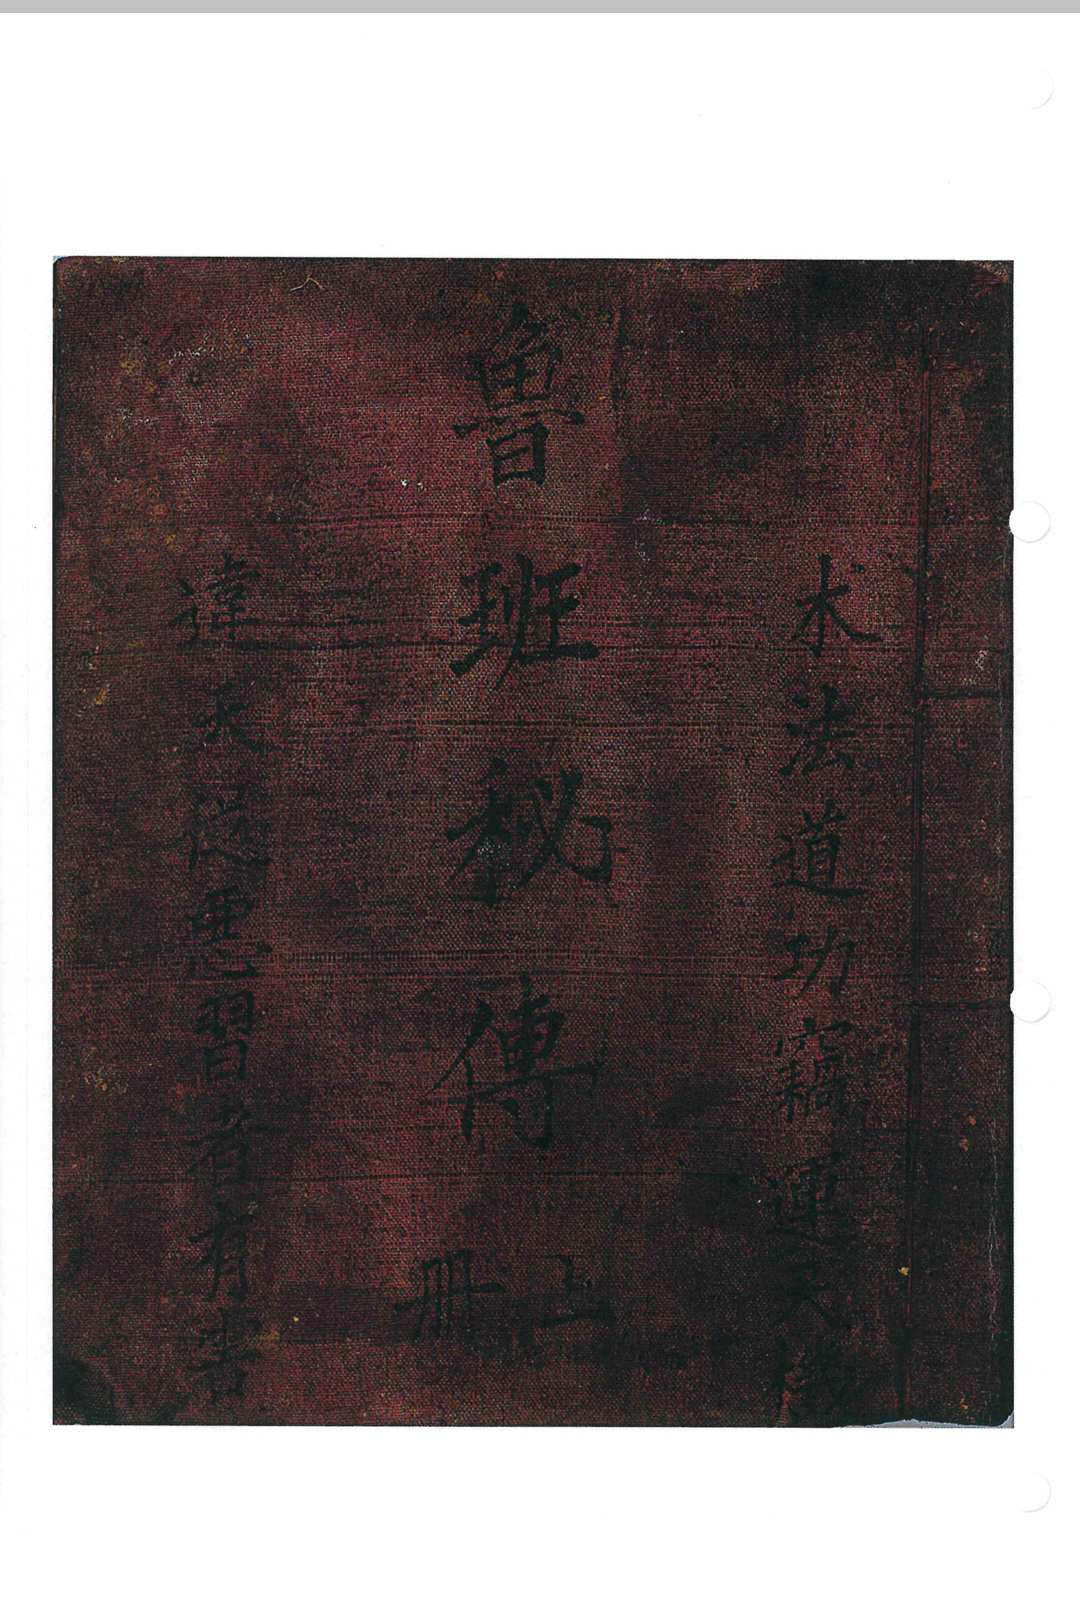 木法道功竅運天
魯班秘傳
上冊
違天從惡習者有害